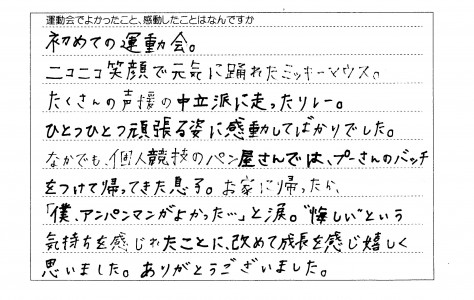 運動会でよかったこと、感動したことはなんですか
初めての運動会。
ニコニコ笑顔で元気に踊れたミッキーマウス。
たくさんの声援の中立派に走ったリレー。
ひとつひとつ頑張る姿に感動してばかりでした。
なかでも、個人競技のパン屋さんでは、プーさんのバッチ
をつけて帰ってきた息子。お家に帰ったか、
「僕、アンパンマンがよかった…」と涙。"悔しい"という
気持ちを感じれたことに、改めて成長を感じ嬉しく
思いました。ありがとうございました。